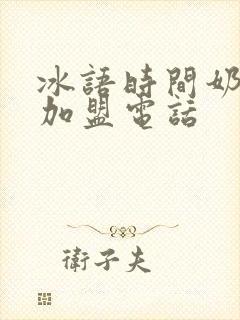 冰語時間奶
加盟電話
衛子夫